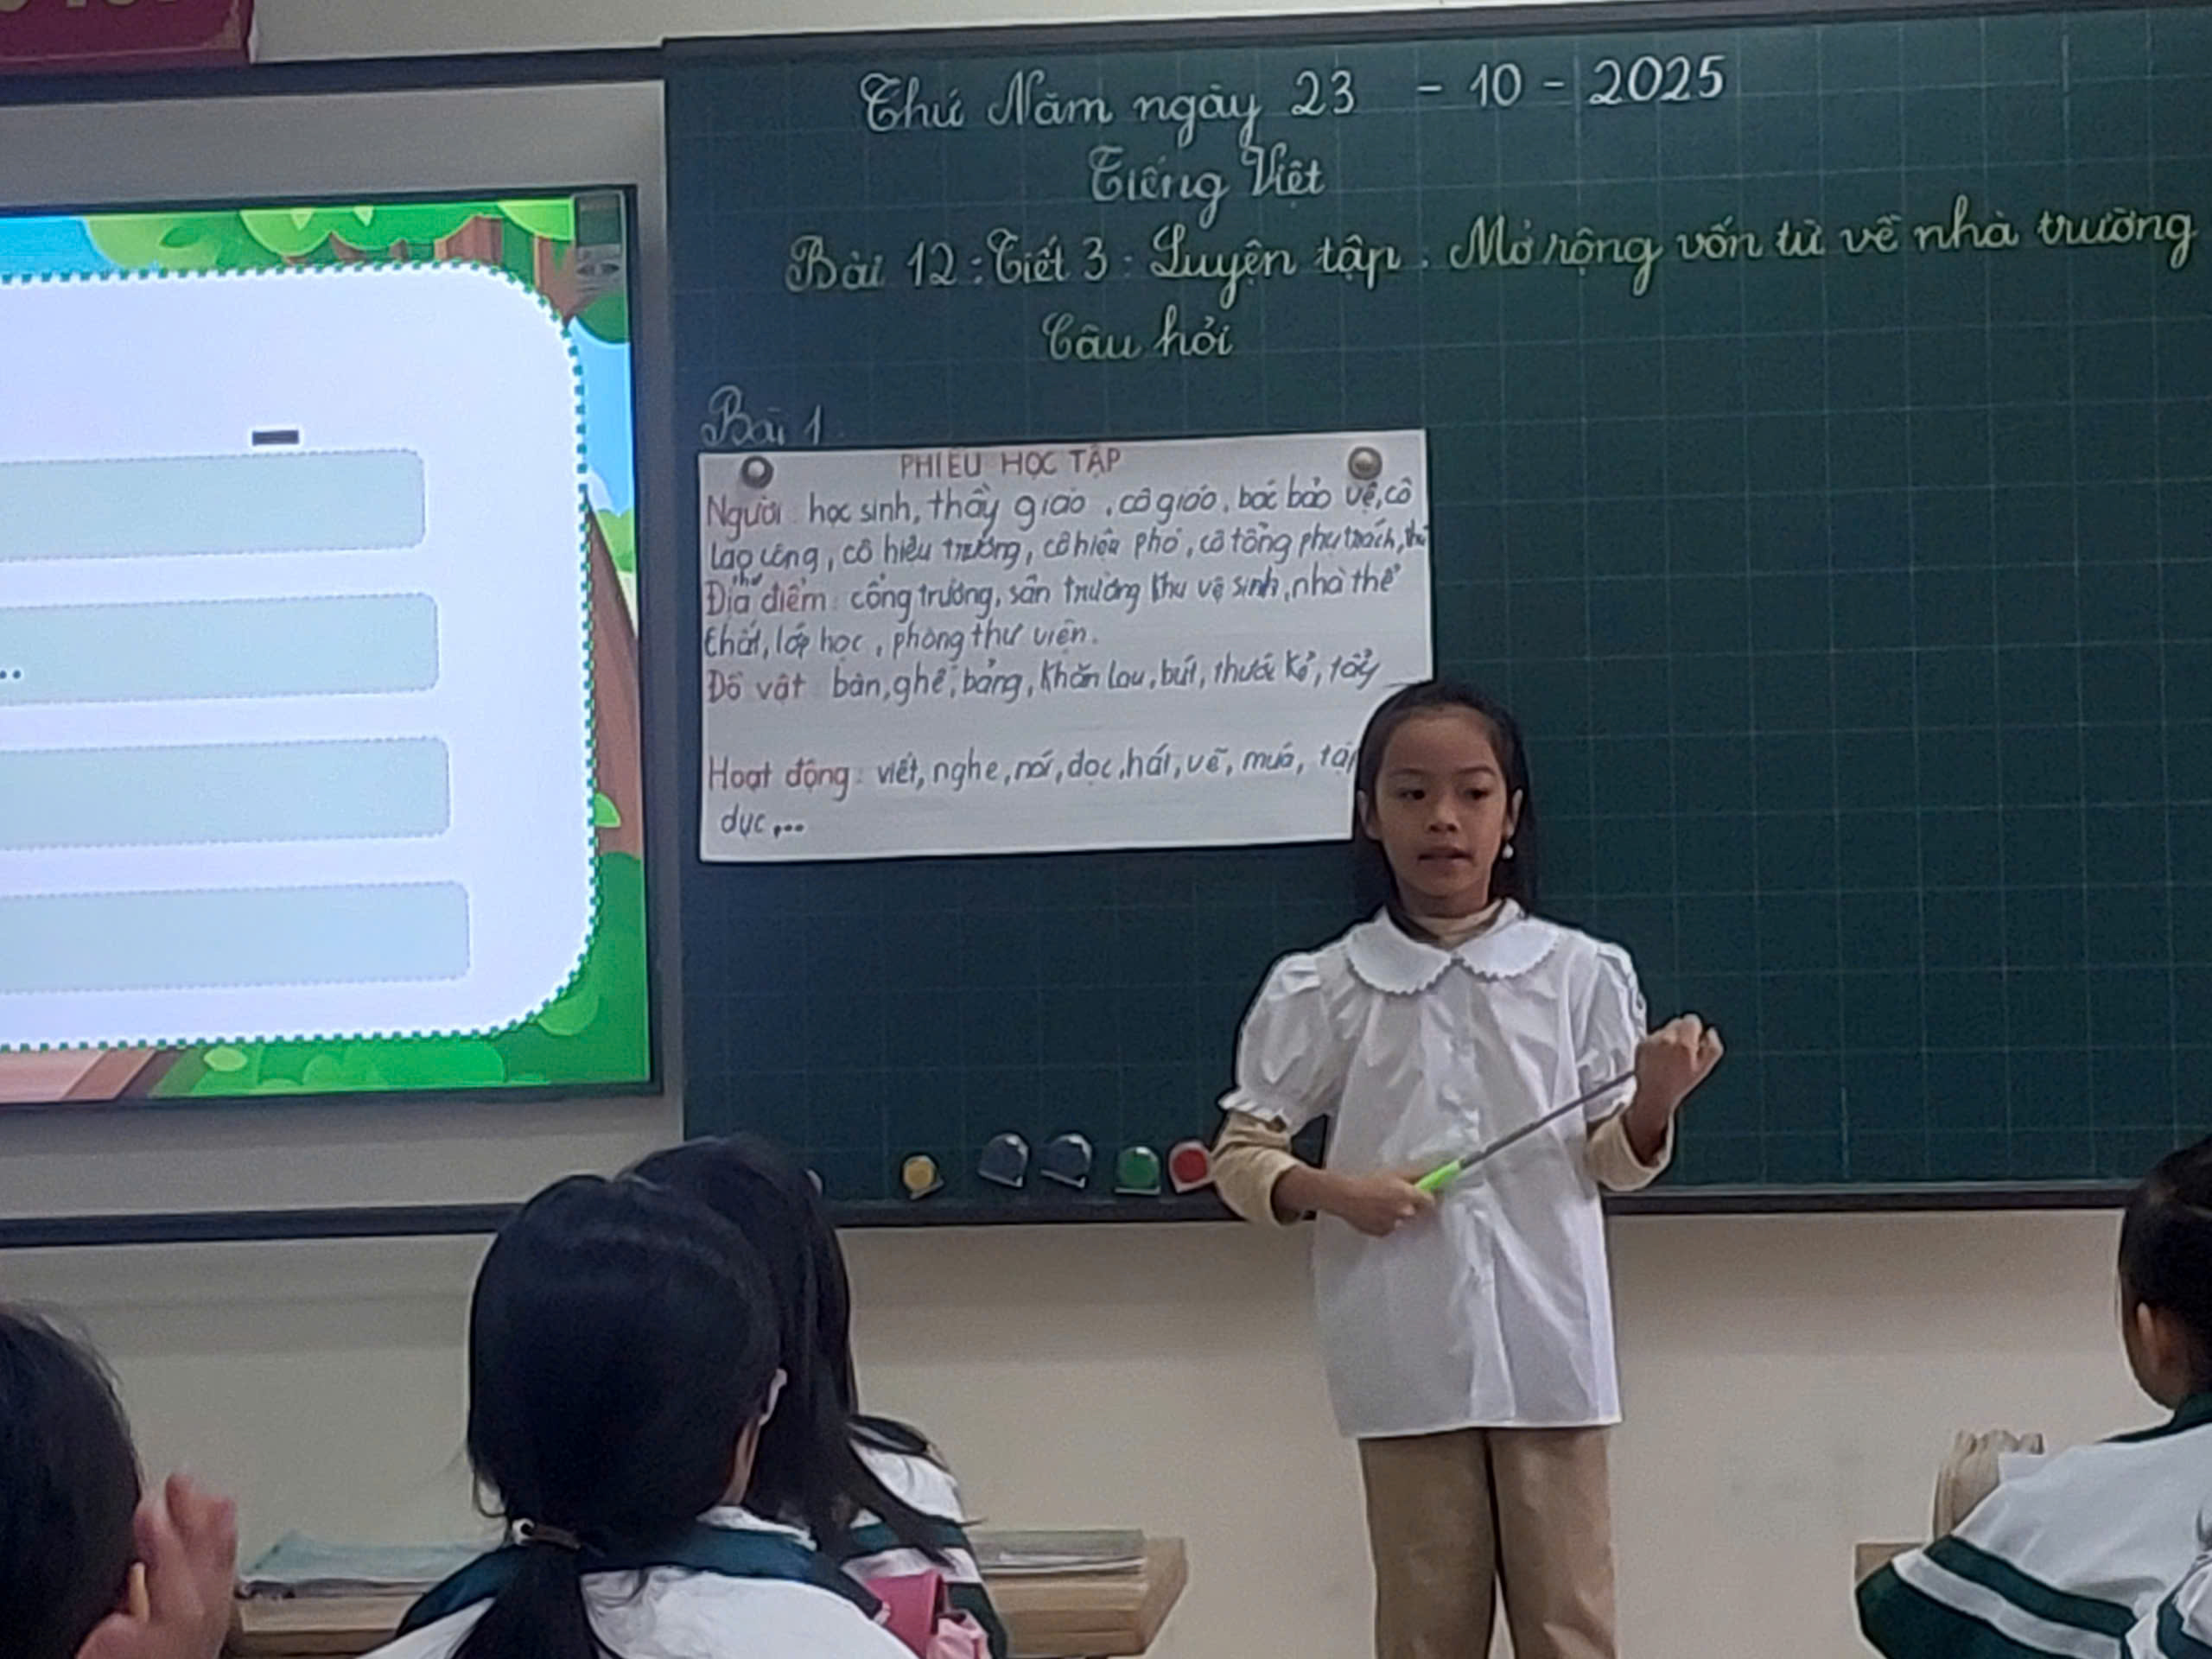 Thứ Năm ngày 23 - 10 - 2025
Tiếng Việt
Bài 12: Tiết 3: Luyện tập. Mở rộng vốn từ về nhà trường
Câu hỏi
Bài 1
PHIẾU HỌC TẬP
Người: học sinh, thầy giáo, cô giáo, bác bảo vệ, cô
lao công, cô hiệu trưởng, cô hiệu phó, cô tổng phụ trách, thủ
thư
Địa điểm: cổng trường, sân trường khu vệ sinh, nhà thể
chất, lớp học, phòng thư viện.
Đồ vật: bàn, ghế, bảng, khăn lau, bút, thước kẻ, tẩy
Hoạt động: viết, nghe, nói, đọc, hát, vẽ, múa,
dục,...